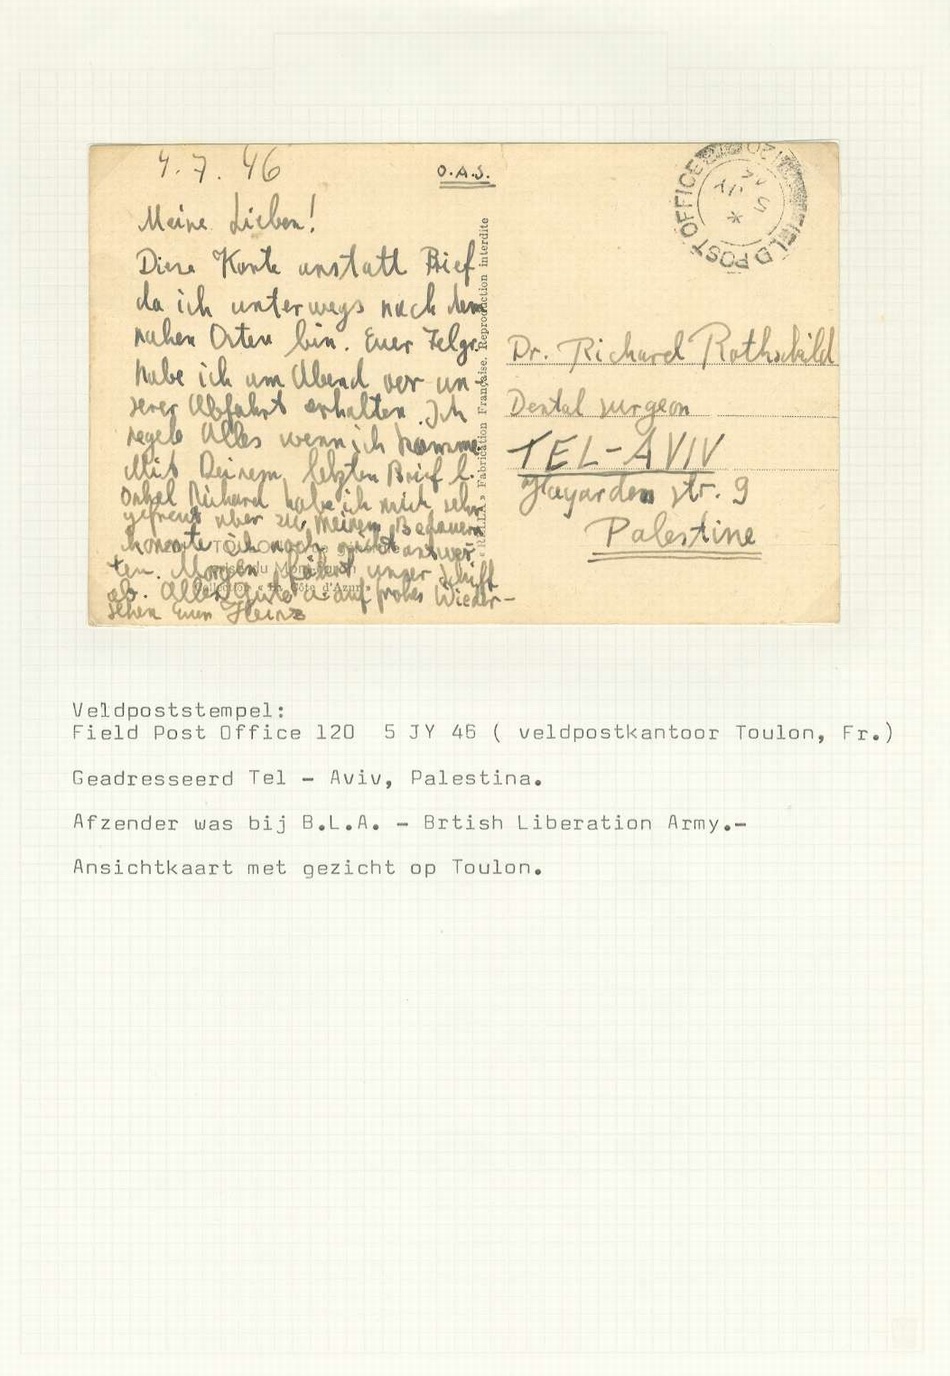 4.7.46
O.A.S.
Meine Lieben!
Diese Karte anstatt Brief
da ich unterwegs nach dem
nahen Osten bin. Euer Telgr.
habe ich am Abend vor un-
serer Abfahrt erhalten. Ich
regele Alles wenn ich komme.
Mit Deinem letzten Brief l.
Onkel Richard habe ich mich sehr
gefreut aber zu meinem Bedauern
konnte ich noch nicht antwor
ten. Morgen fährt unser Schiff
ab. Alles Gute u. auf frohes Wieder-
sehen Euer Heinz
» Fabrication Française. Reproduction interdite
FIELD POST OFFICE 120
5 JY 46
Dr. Richard Rothschild
Dental surgeon
TEL-AVIV
Hayarden str. 9
Palestine
Veldpoststempel:
Field Post Office 120 5 JY 46 ( veldpostkantoor Toulon, Fr.)
Geadresseerd Tel - Aviv, Palestina.
Afzender was bij B.L.A. - Brtish Liberation Army.-
Ansichtkaart met gezicht op Toulon.